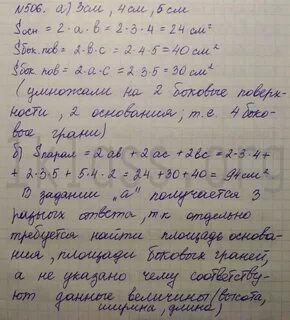 N506. а) 3см, 4см, 5см
Sосн = 2·а·в = 2·3·4 = 24см²
Sбок.пов = 2·в·с = 2·4·5 = 40см²
Sбок.пов = 2·а·с = 2·3·5 = 30см²
(умножали на 2 боковые поверх-
ности, 2 основания, т.е. 4 боко-
вые грани)
б) Sпарал = 2ав + 2ас + 2вс = 2·3·4+
+ 2·3·5 + 5·4·2 = 24 + 30 + 40 = 94см²
В задании "а" получается 3
разных ответа, т.к отдельно
требуется найти площадь основа-
ния, площади боковых граней,
а не указано чему соответству-
ют данные величины (высота,
ширина, длина)